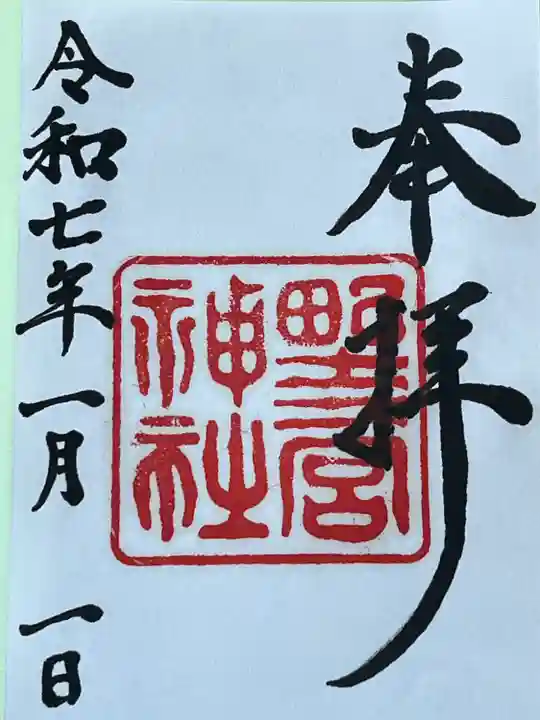 奉拝
野宮
神社
令和七年一月一日